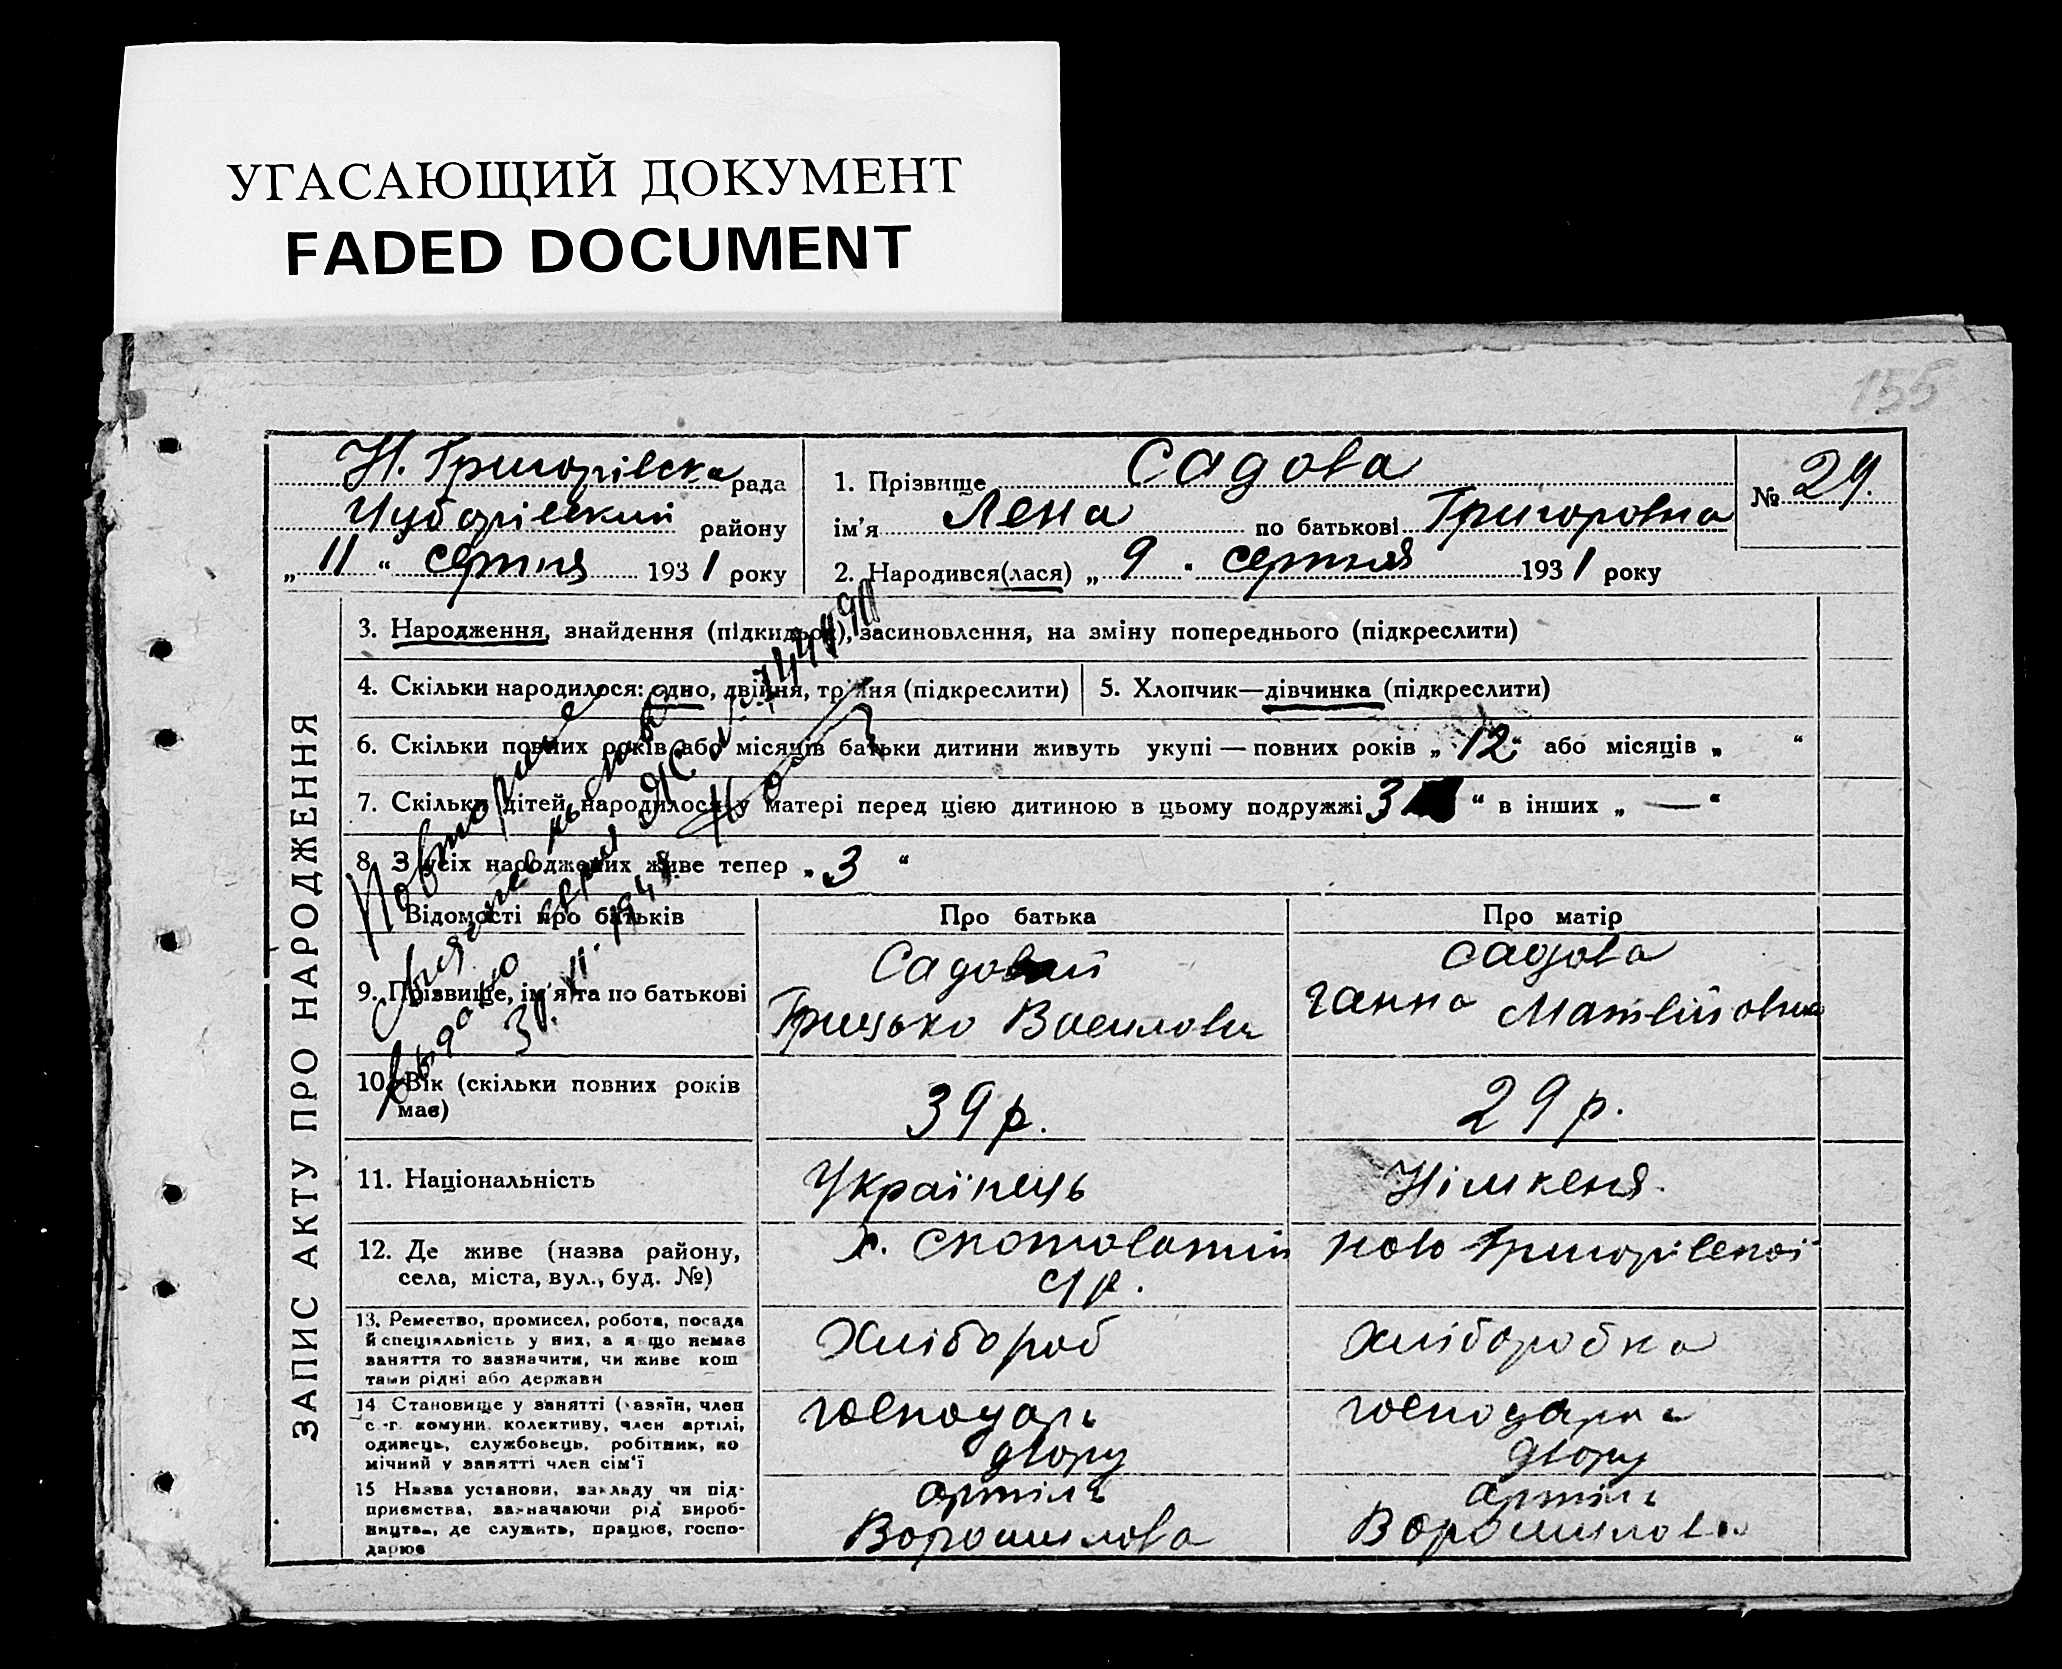 УГАСАЮЩИЙ ДОКУМЕНТ
FADED DOCUMENT
155
Н. Григорівска рада
Чубарівский району
„ 11 “ серпня 1931 року
1. Прізвище Садова
ім’я Лена по батькові Григоровна
2. Народився(лася) „ 9 “ серпня 1931 року
№ 29.
ЗАПИС АКТУ ПРО НАРОДЖЕННЯ
3. Народження, знайдення (підкидьок), засиновлення, на зміну попереднього (підкреслити)
4. Скільки народилося: одно, двійня, трійня (підкреслити)
5. Хлопчик—дівчинка (підкреслити)
6. Скільки повних років або місяців батьки дитини живуть укупі — повних років „ 12 “ або місяців „ “
7. Скільки дітей народилося у матері перед цією дитиною в цьому подружжі 3 “ в інших „ — “
8. З усіх народжених живе тепер „ 3 “
Повторне
Відомості про батьків
Про батька
Про матір
9. Прізвище, ім’я та по батькові
Садовий
Грицько Василови
Садова
Ганна Матвійовна
10. Вік (скільки повних років має)
39 р.
29 р.
11. Національність
Українець
Німкеня
12. Де живе (назва району, села, міста, вул., буд. №)
х.
с/р.
Ново Григорівскої
13. Ремество, промисел, робота, посада
й спеціяльність у них, а якщо немає
заняття то зазначити, чи живе кош
тами рідні або держави
Хлібороб
Хліборобка
14 Становище у занятті (хазяїн, член
с.-г. комуни, колективу, член артілі,
одинець, службовець, робітник, по
мічний у занятті член сім’ї
господарь
двору
господарка
двору
15 Назва установи, закладу чи під-
приємства, зазначаючи рід вироб-
ництва, де служить, працює, госпо-
дарює
артіль
Ворошилова
артіль
Ворошилова